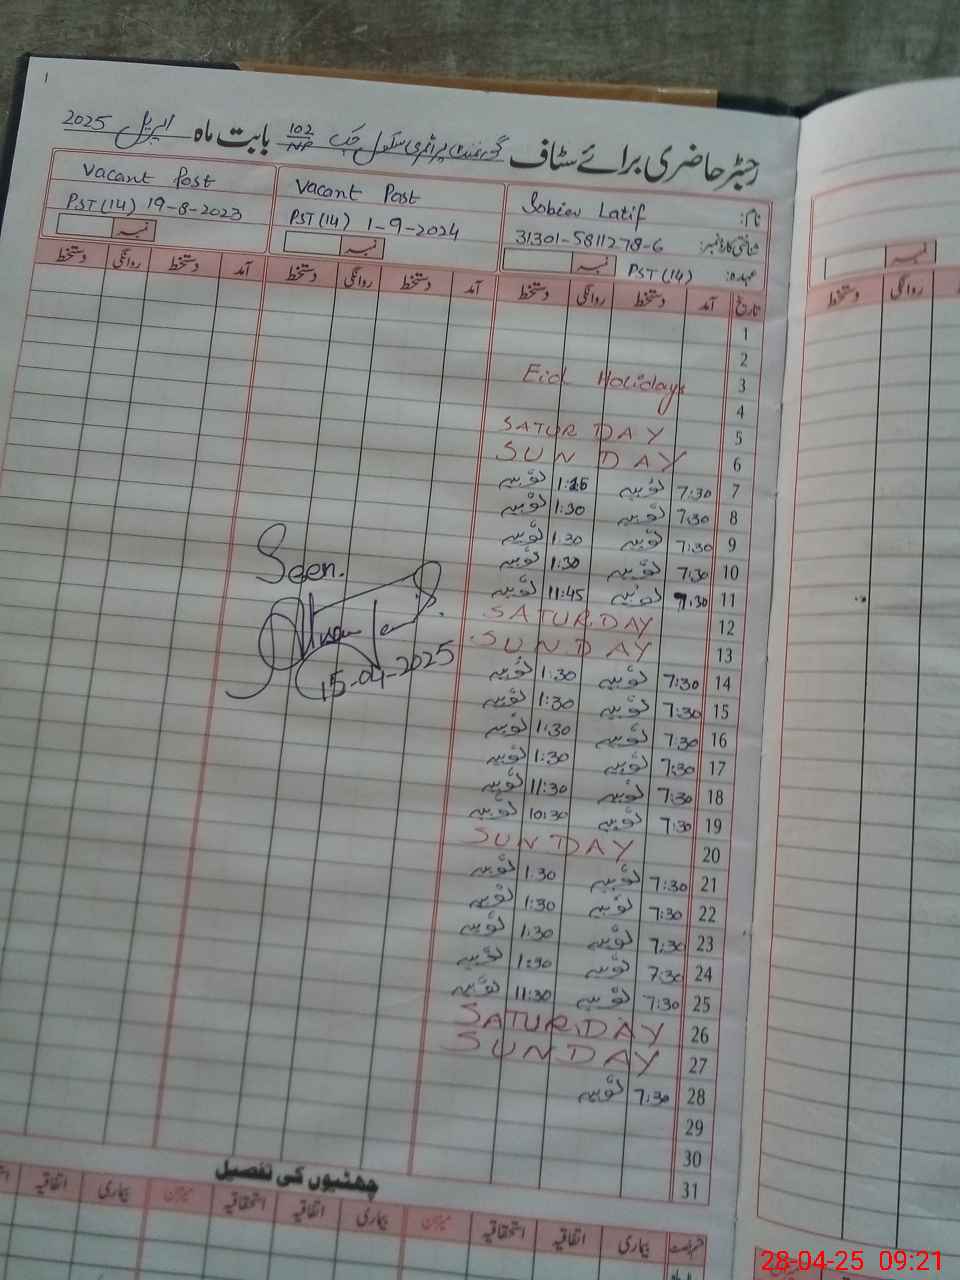 1
رجسٹر حاضری برائے سٹاف گورنمنٹ پرائمری سکول چک 102/NP بابت ماہ اپریل 2025
نام: Sobia Latif
Vacant Post
Vacant Post
شناختی کارڈ نمبر: 31301-5811278-6
PST (14) 1-9-2024
PST (14) 19-8-2023
عہدہ: PST (14) نمبر
نمبر
نمبر
تاریخ آمد دستخط روانگی دستخط آمد دستخط روانگی دستخط آمد دستخط روانگی دستخط
1
2
3 Eid Holidays
4
5 SATURDAY
6 SUNDAY
7 7:30 ثوبیہ 1:25 ثوبیہ
8 7:30 ثوبیہ 1:30 ثوبیہ
9 7:30 ثوبیہ 1:30 ثوبیہ
10 7:30 ثوبیہ 1:30 ثوبیہ
11 7:30 ثوبیہ 11:45 ثوبیہ
12 SATURDAY
13 SUNDAY
14 7:30 ثوبیہ 1:30 ثوبیہ
15 7:30 ثوبیہ 1:30 ثوبیہ
16 7:30 ثوبیہ 1:30 ثوبیہ
17 7:30 ثوبیہ 1:30 ثوبیہ
18 7:30 ثوبیہ 11:30 ثوبیہ
19 7:30 ثوبیہ 10:30 ثوبیہ
20 SUNDAY
21 7:30 ثوبیہ 1:30 ثوبیہ
22 7:30 ثوبیہ 1:30 ثوبیہ
23 7:30 ثوبیہ 1:30 ثوبیہ
24 7:30 ثوبیہ 1:30 ثوبیہ
25 7:30 ثوبیہ 11:30 ثوبیہ
26 SATURDAY
27 SUNDAY
28 7:30 ثوبیہ
29
30
31
Seen.
15-04-2025
چھٹیوں کی تفصیل
قسم رخصت بیماری اتفاقیہ استحقاقیہ میزان بیماری اتفاقیہ استحقاقیہ میزان بیماری اتفاقیہ
نمبر
روانگی دستخط
28-04-25 09:21